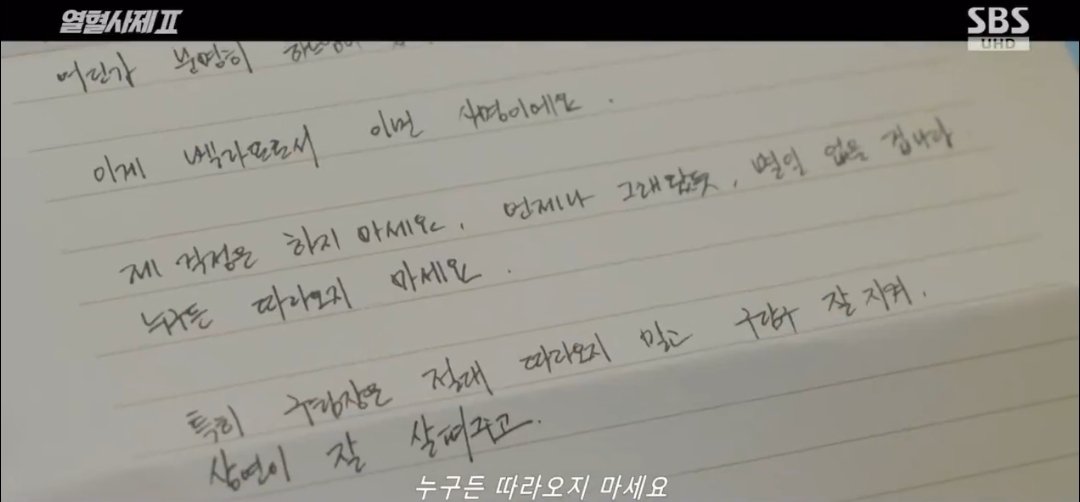 열혈사제Ⅱ
SBS
UHD
어딘가 분명히
이게 벨라또로서 이번 사명이에요.
제 걱정은 하지 마세요. 언제나 그래왔듯, 별일 없을 겁니다
누구든 따라오지 마세요.
특히 구팀장은 절대 따라오지 말고 구담구 잘 지켜.
상연이 잘 살펴주고.
누구든 따라오지 마세요